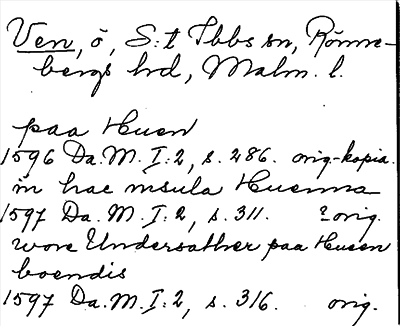 Ven, ö, S:t Ibbs sn, Rönne-
bergs hd, Malm. l.
paa Huen
1596 Da. M. I:2, s. 286. orig-kopia.
in hac insula Huenna
1597 Da. M. I:2, s. 311. ?orig.
wore Undersather paa Hueen
boendis
1597 Da. M. I:2, s. 316. orig.